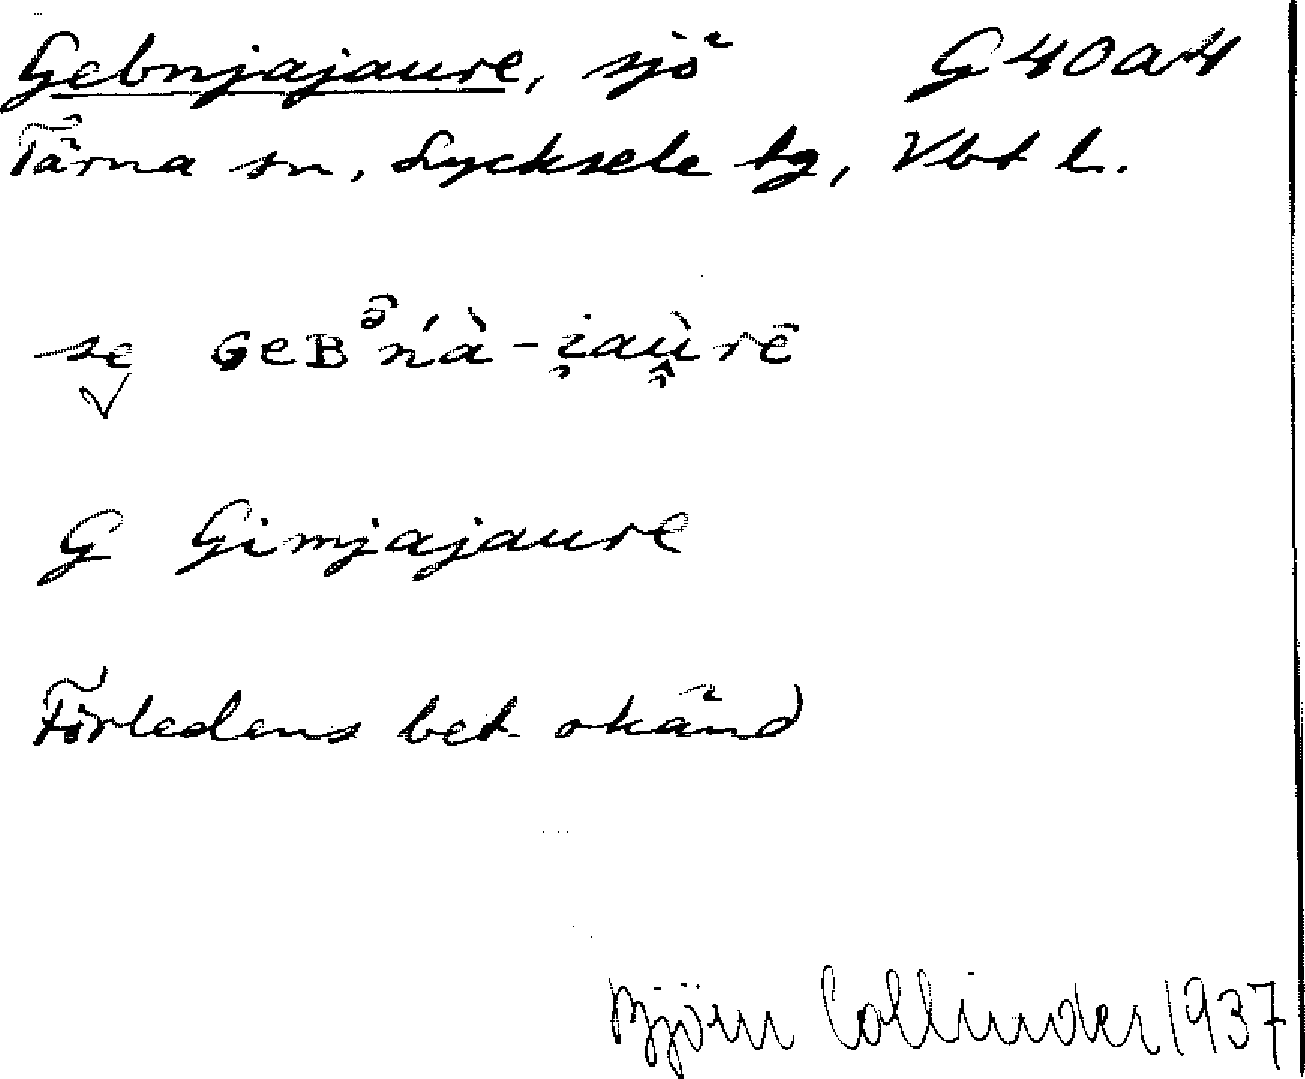 Gebnjajaure, sjö G 40 a 4
Tärna sn, Lycksele tg, Vbt l.
se ɢeʙᵊ̑ńà-i̯aù̯rē
G Gimjajaure
Förledens bet. okänd
Björn Collinder 1937